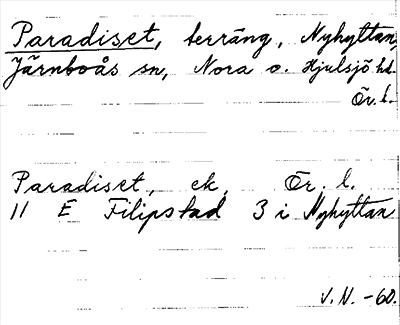 Paradiset, terräng, Nyhyttan,
Järnboås sn, Nora o. Hjulsjö hd.
Ör. l.
Paradiset, ek. Ör. l.
11 E Filipstad 3 i Nyhyttan
V. N. -60.